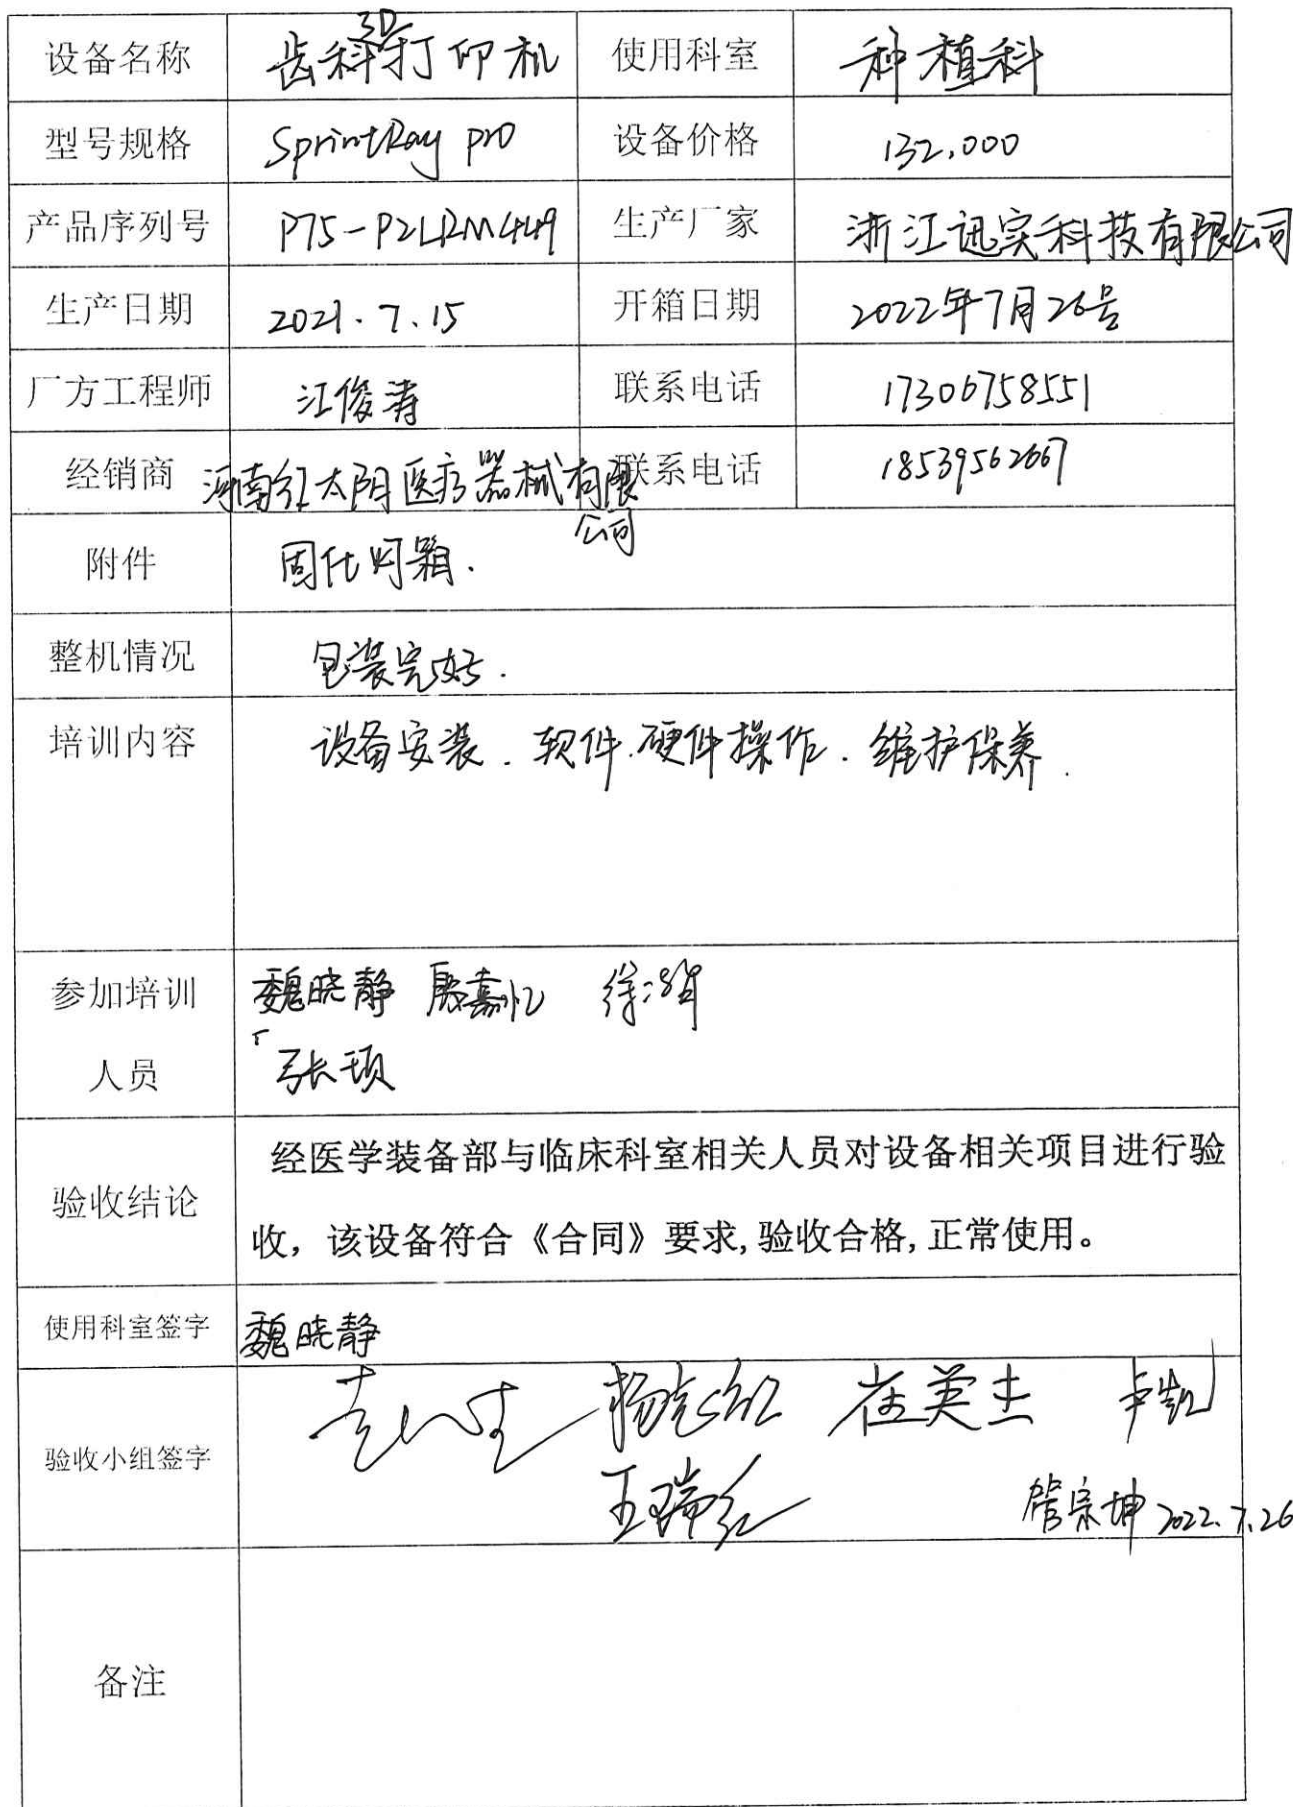 设备名称 齿科3D打印机 使用科室 种植科
型号规格 SprintRay pro 设备价格 132,000
产品序列号 P75-P2LRM449 生产厂家 浙江迅实科技有限公司
生产日期 2021.7.15 开箱日期 2022年7月26号
厂方工程师 江俊涛 联系电话 17306758551
经销商 河南红太阳医疗器械有限 联系电话 18539562667
公司
附件 固化灯箱.
整机情况 包装完好.
培训内容 设备安装.软件.硬件操作.维护保养.
参加培训 魏晓静 殷嘉忆
人员 张顼
经医学装备部与临床科室相关人员对设备相关项目进行验
验收结论
收，该设备符合《合同》要求,验收合格,正常使用。
使用科室签字 魏晓静
崔英杰 卢凯
验收小组签字
王瑞红 管宗坤 2022.7.26
备注